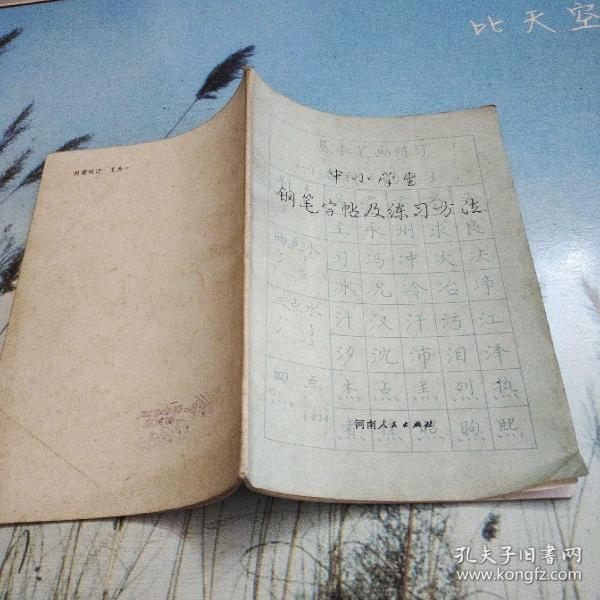 比天空
封面设计 王为一
基本笔画练习
中小学生
钢笔字帖及练习方法
主永州求良
两点水
习冯冲次决
冰况冷冶净
三点水
汁汉汗污江
汐沈沛泪泽
四点
杰点羔烈热
1234
河南人民出版社
煦熙
孔夫子旧书网
www.kongfz.com